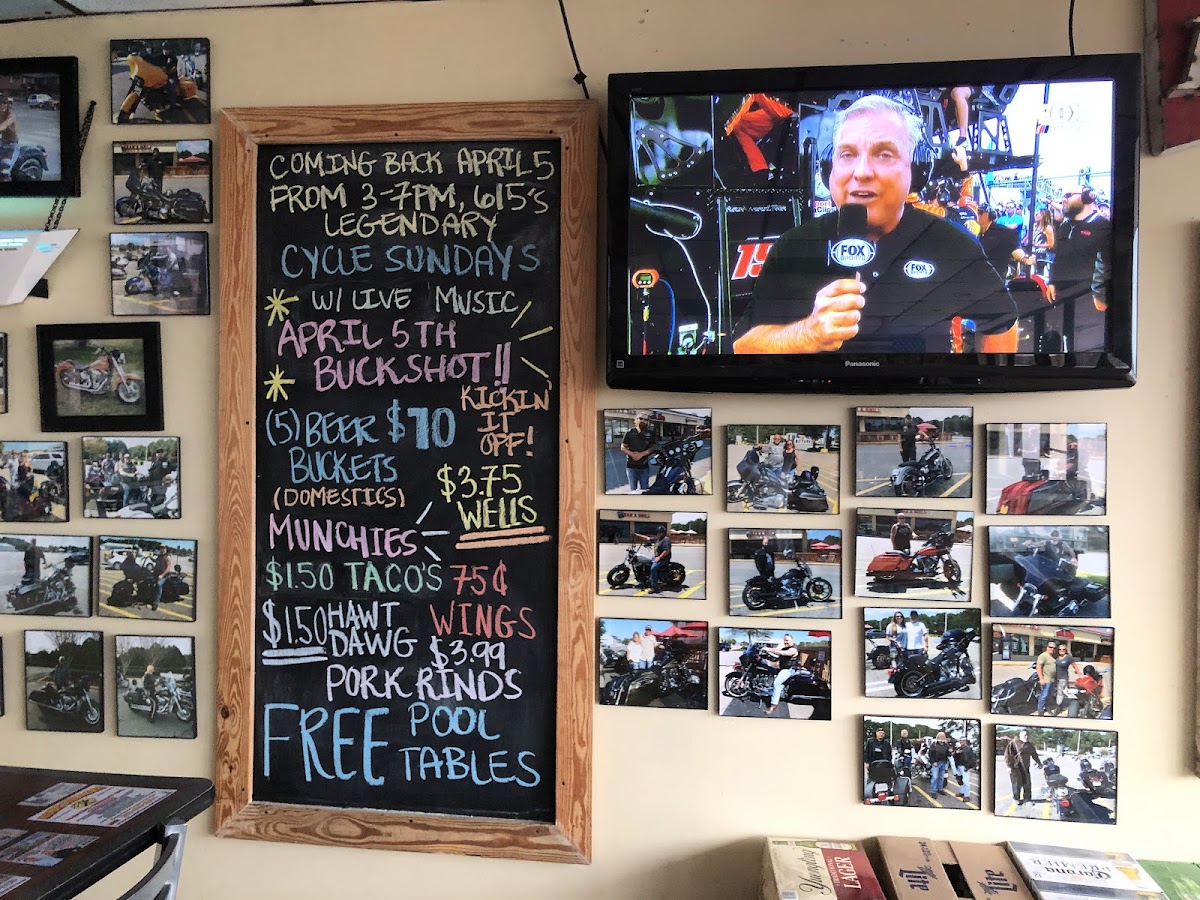 COMING BACK APRIL 5
FROM 3-7PM, 615'S
LEGENDARY
CYCLE SUNDAYS
W/ LIVE MUSIC
APRIL 5TH
BUCKSHOT!!
KICKIN
IT
OFF!
(5) BEER $10
BUCKETS
(DOMESTICS)
$3.75
WELLS
MUNCHIES
$1.50 TACO'S 75¢
WINGS
$1.50 HAWT
DAWG $3.99
PORK RINDS
FREE POOL
TABLES
FOX
SPORTS
FOX
SPORTS
15
Panasonic
Yuengling
LAGER
Lite
Lite
Corona
PREMIER